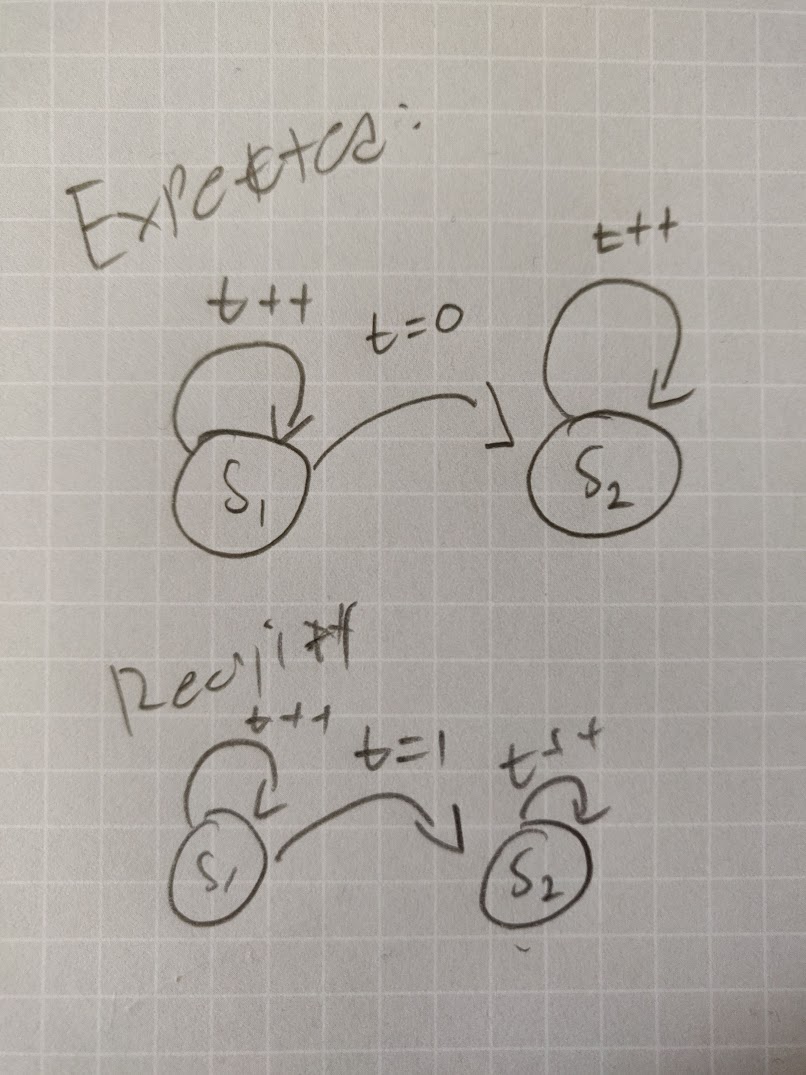 Expected:
t++
t++ t=0
S1 S2
Reality
t++ t=1 t++
S1 S2